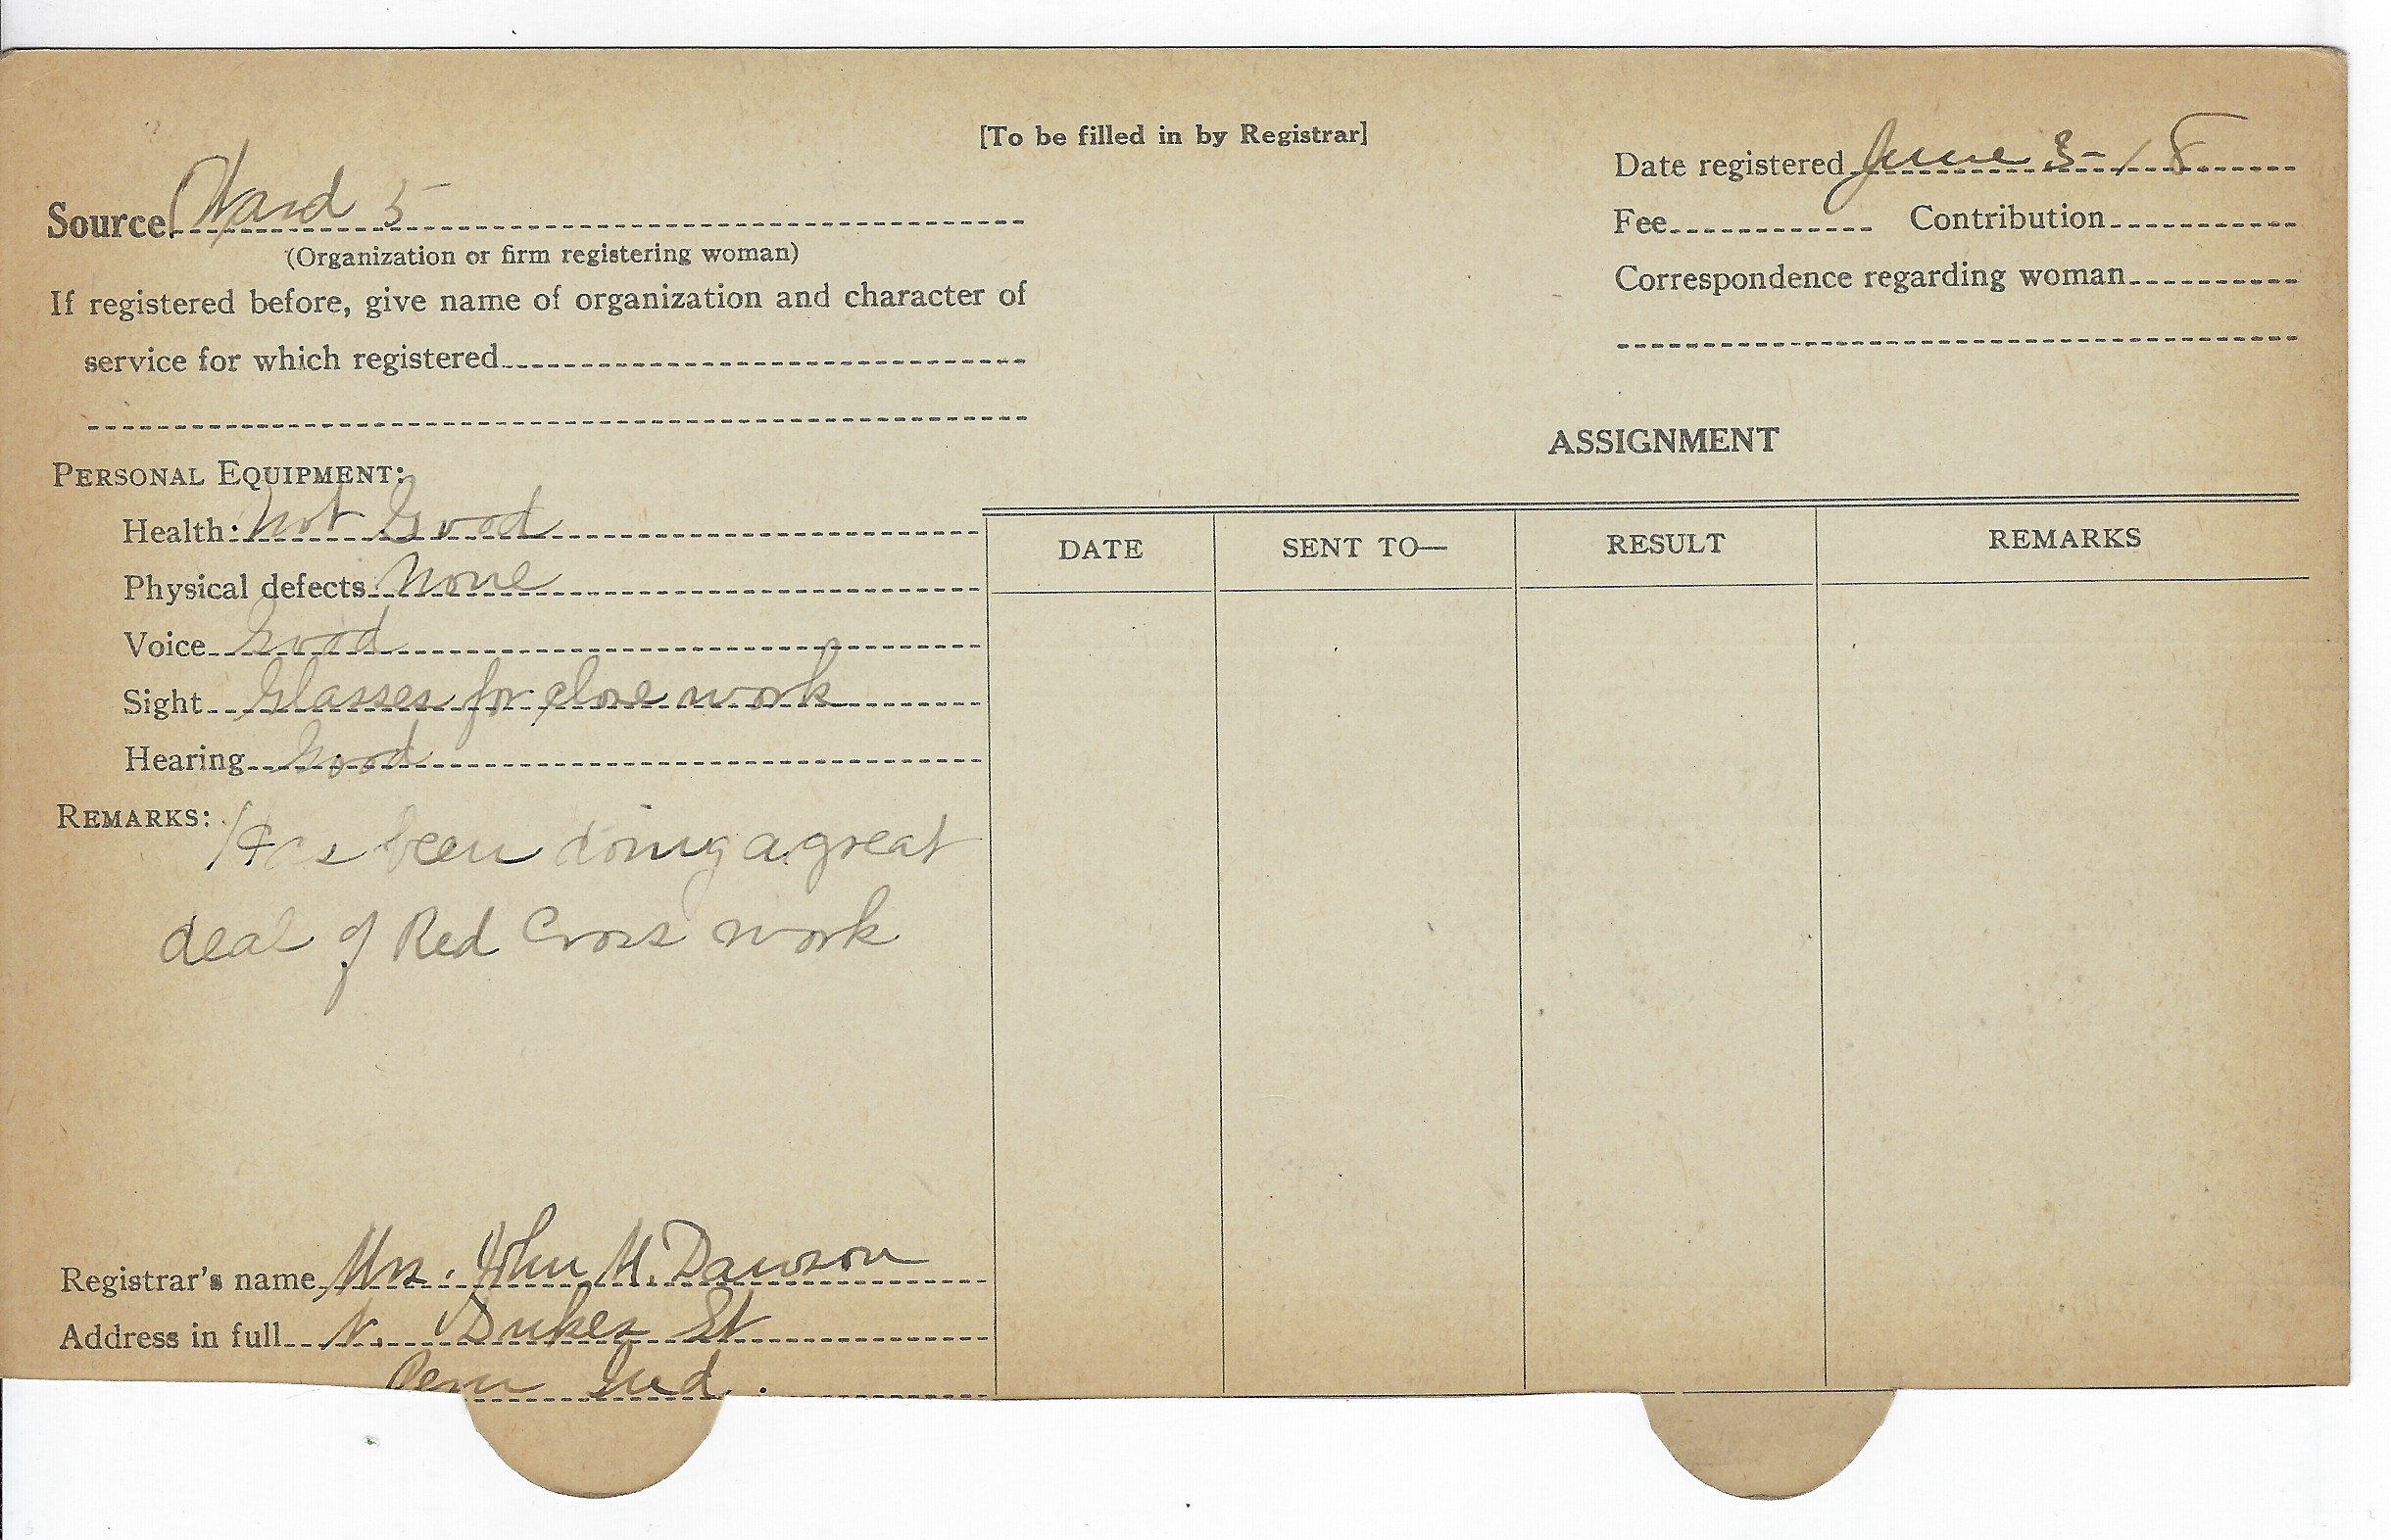 [To be filled in by Registrar]
Date registered June 3-18
Source Ward 5
Fee Contribution
(Organization or firm registering woman)
Correspondence regarding woman
If registered before, give name of organization and character of
service for which registered
ASSIGNMENT
PERSONAL EQUIPMENT:
Health: Not Good
DATE SENT TO— RESULT REMARKS
Physical defects None
Voice Good
Sight Glasses for close work
Hearing Good
REMARKS: Has been doing a great
deal of Red Cross work
Registrar's name Mrs. John M. Dawson
Address in full N. Dukes St
Peru Ind.